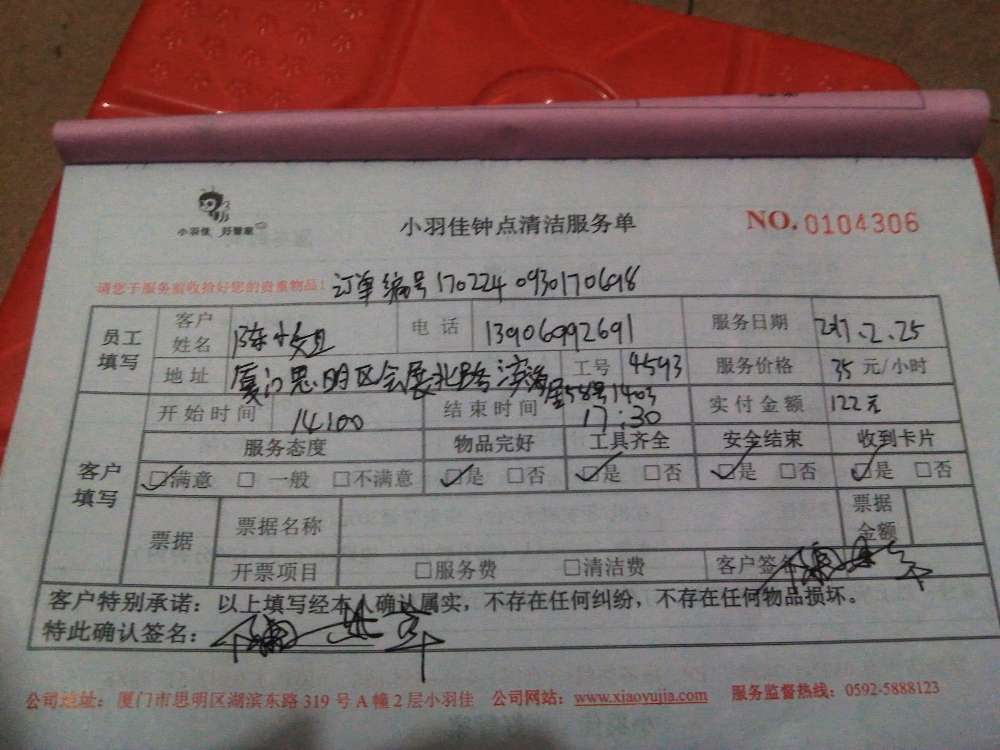 小羽佳 好管家
小羽佳钟点清洁服务单
NO. 0104306
请您于服务前收拾好您的贵重物品！ 订单编号170224 0930170698
员工填写 客户姓名 陈小姐 电话 13906992691 服务日期 2017.2.25
地址 厦门思明区会展北路 工号 4593 服务价格 35 元/小时
58号1403
开始时间 14:00 结束时间 17:30 实付金额 122元
客户填写 服务态度 物品完好 工具齐全 安全结束 收到卡片
☑满意 □一般 □不满意 ☑是 □否 ☑是 □否 ☑是 □否 ☑是 □否
票据 票据名称 票据金额
开票项目 □服务费 □清洁费 客户签名
客户特别承诺：以上填写经本人确认属实，不存在任何纠纷，不存在任何物品损坏。
特此确认签名：
公司地址：厦门市思明区湖滨东路 319 号 A 幢 2 层小羽佳 公司网站：www.xiaoyujia.com 服务监督热线：0592-5888123